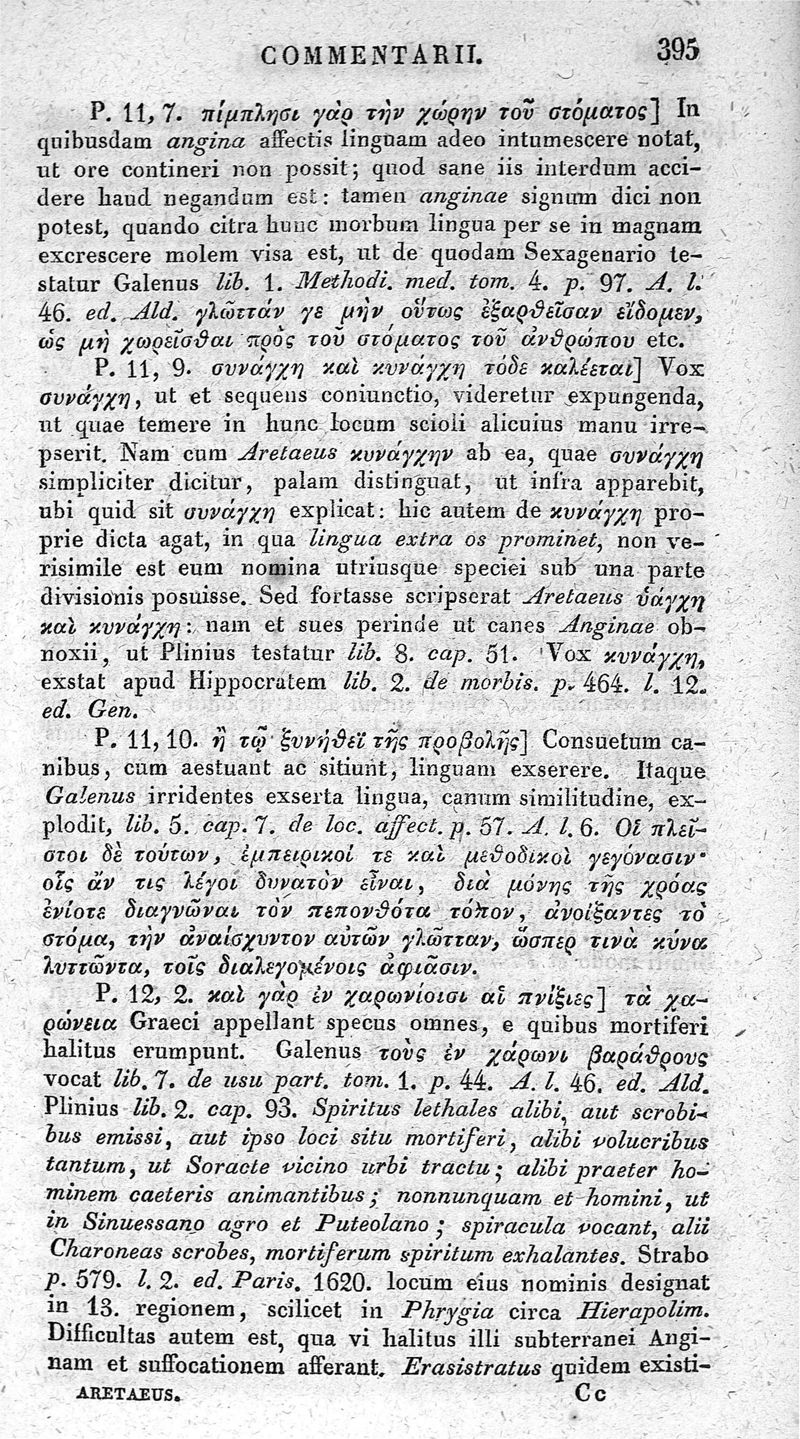 COMMENTARII. 395
P. 11, 7. πίμπλησι γὰρ τὴν χώρην τοῦ στόματος] In
quibusdam angina affectis linguam adeo intumescere notat,
ut ore contineri non possit; quod sane iis interdum acci-
dere haud negandum est: tamen anginae signum dici non
potest, quando citra hunc morbum lingua per se in magnam
excrescere molem visa est, ut de quodam Sexagenario te-
statur Galenus lib. 1. Methodi. med. tom. 4. p. 97. A. l.
46. ed. Ald. γλῶττάν γε μὴν οὕτως ἐξαρθεῖσαν εἴδομεν,
ὡς μὴ χωρεῖσθαι πρὸς τοῦ στόματος τοῦ ἀνθρώπου etc.
P. 11, 9. συνάγχη καὶ κυνάγχη τόδε καλέεται] Vox
συνάγχη, ut et sequens coniunctio, videretur expungenda,
ut quae temere in hunc locum scioli alicuius manu irre-
pserit. Nam cum Aretaeus κυνάγχην ab ea, quae συνάγχη
simpliciter dicitur, palam distinguat, ut infra apparebit,
ubi quid sit συνάγχη explicat: hic autem de κυνάγχη pro-
prie dicta agat, in qua lingua extra os prominet, non ve-
risimile est eum nomina utriusque speciei sub una parte
divisionis posuisse. Sed fortasse scripserat Aretaeus ὑάγχη
καὶ κυνάγχη: nam et sues perinde ut canes Anginae ob-
noxii, ut Plinius testatur lib. 8. cap. 51. Vox κυνάγχη,
exstat apud Hippocratem lib. 2. de morbis. p. 464. l. 12.
ed. Gen.
P. 11, 10. ἢ τῷ ξυνήθεϊ τῆς προβολῆς] Consuetum ca-
nibus, cum aestuant ac sitiunt, linguam exserere. Itaque
Galenus irridentes exserta lingua, canum similitudine, ex-
plodit, lib. 5. cap. 7. de loc. affect. p. 57. A. l. 6. Οἱ πλεῖ-
στοι δὲ τούτων, ἐμπειρικοί τε καὶ μεθοδικοὶ γεγόνασιν·
οἷς ἄν τις λέγοι δυνατὸν εἶναι, διὰ μόνης τῆς χρόας
ἐνίοτε διαγνῶναι τὸν πεπονθότα τόπον, ἀνοίξαντες τὸ
στόμα, τὴν ἀναίσχυντον αὐτῶν γλῶτταν, ὥσπερ τινὰ κύνα
λυττῶντα, τοῖς διαλεγομένοις ἀφιᾶσιν.
P. 12, 2. καὶ γὰρ ἐν χαρωνίοισι αἱ πνίξιες] τὰ χα-
ρώνεια Graeci appellant specus omnes, e quibus mortiferi
halitus erumpunt. Galenus τοὺς ἐν χάρωνι βαράθρους
vocat lib. 7. de usu part. tom. 1. p. 44. A. l. 46. ed. Ald.
Plinius lib. 2. cap. 93. Spiritus lethales alibi, aut scrobi-
bus emissi, aut ipso loci situ mortiferi, alibi volucribus
tantum, ut Soracte vicino urbi tractu; alibi praeter ho-
minem caeteris animantibus; nonnunquam et homini, ut
in Sinuessano agro et Puteolano; spiracula vocant, alii
Charoneas scrobes, mortiferum spiritum exhalantes. Strabo
p. 579. l. 2. ed. Paris. 1620. locum eius nominis designat
in 13. regionem, scilicet in Phrygia circa Hierapolim.
Difficultas autem est, qua vi halitus illi subterranei Angi-
nam et suffocationem afferant. Erasistratus quidem existi-
ARETAEUS. Cc